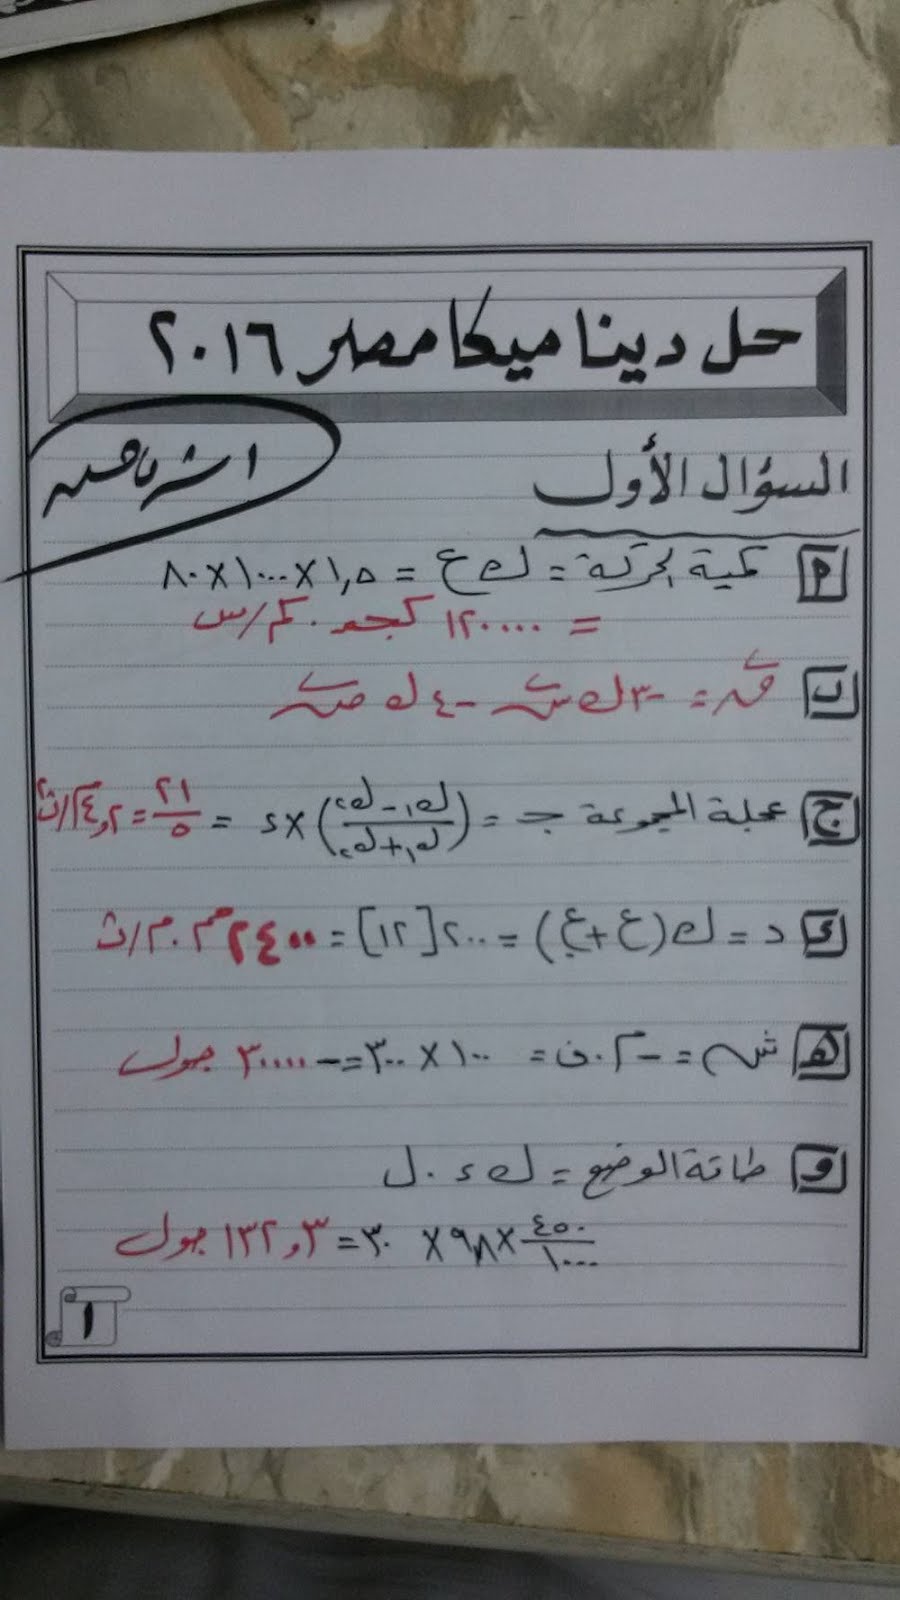 حل ديناميكا مصر ٢٠١٦
السؤال الأول
أ كمية الحركة = ك ع = ١,٥ × ١٠٠٠ × ٨٠
= ١٢٠٠٠٠ كجم . كم/س
ب ق = -٣ ك س - ٤ ك ص
ج عجلة المجموعة ج = (ك١ - ك٢ / ك١ + ك٢) × ء = ٢١/٥ = ٤,٢ م/ث٢
د د = ك (ع + ع) = ٢٠٠ [١٢] = ٢٤٠٠ جم . م/ث
هـ ش = - م . ف = ١٠٠ × ٣٠٠ = - ٣٠٠٠٠ جول
و طاقة الوضع = ك ء . ل
٤٥٠/١٠٠٠ × ٩,٨ × ٣٠ = ١٣٢,٣ جول
١